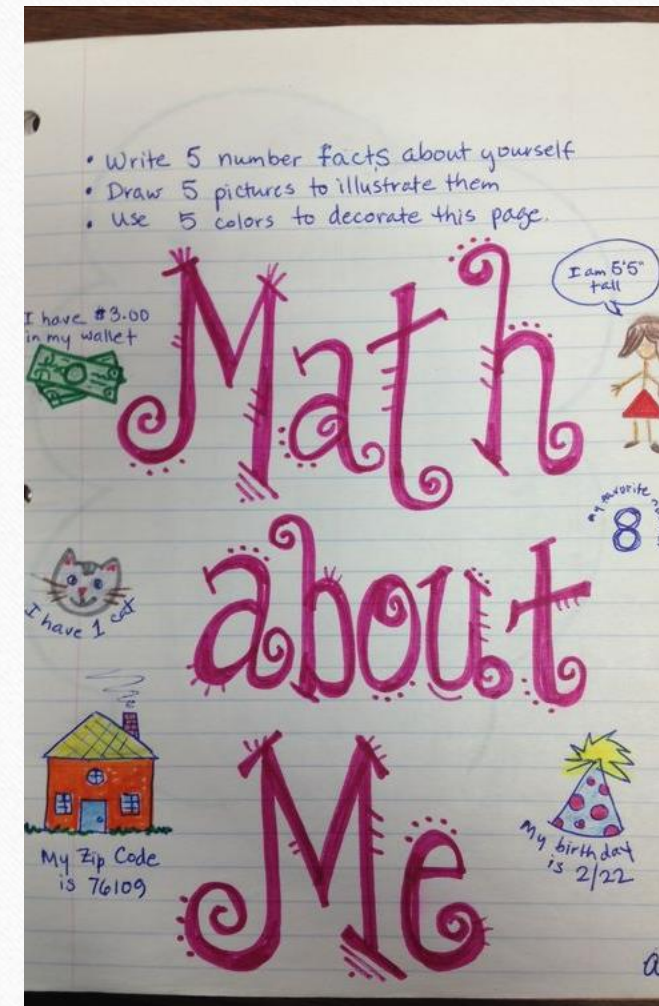 • Write 5 number facts about yourself
• Draw 5 pictures to illustrate them
• Use 5 colors to decorate this page.
I have $3.00
in my wallet
Math
I am 5'5"
tall
my favorite
8
about
I have 1 cat
Me
My Zip Code
is 76109
My birthday
is 2/22